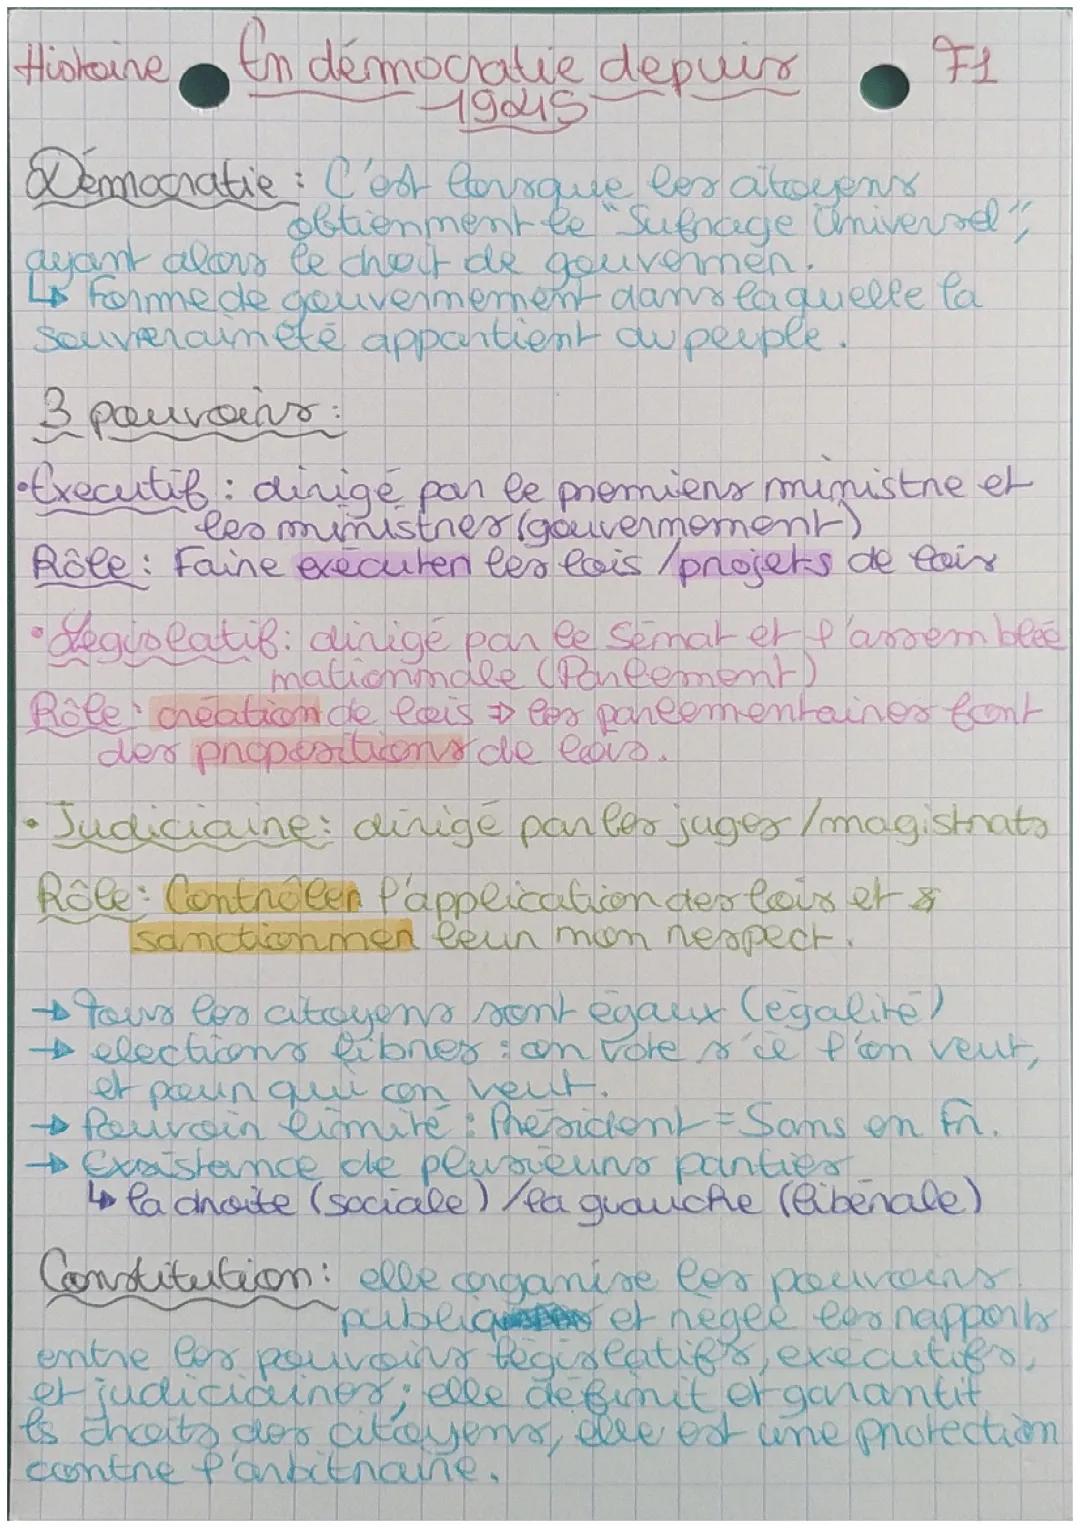 Histoire En démocratie depuis F1
1945
Démocratie : C'est lorsque les citoyens
obtiennent le "Sufrage Universel",
ayant alors le droit de gouverner.
↳ Forme de gouvernement dans laquelle la
souveraineté appartient au peuple.
3 pouvoirs :
•Executif : dirigé par le premiers ministre et
les ministres (gouvernement)
Rôle : Faire exécuter les lois / projets de lois
•Législatif : dirigé par le Sénat et l'assemblée
nationnale (Parlement)
Rôle : création de lois ⇒ les parlementaires font
des propositions de lois.
• Judiciaire : dirigé par les juges / magistrats
Rôle : Contrôler l'application des lois et
sanctionner leur non respect.
→ Tous les citoyens sont égaux (égalité)
→ elections libres : on vote s'il l'on veut,
et pour qui on veut.
→ Pouvoir limité : Président = 5ans en Fr.
→ Existance de plusieurs parties
↳ la droite (sociale) / la guauche (libérale)
Constitution : elle organise les pouvoirs
publiq et règle les rapports
entre les pouvoirs législatifs, exécutifs,
et judiciaires ; elle définit et garantit
ls droits des citoyens, elle est une protection
contre l'arbitraire.